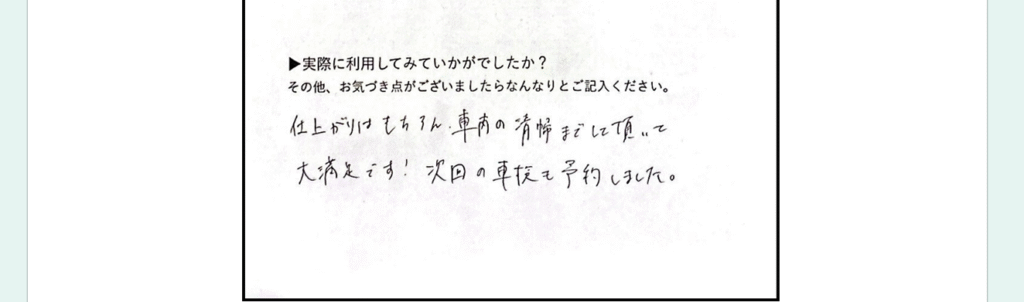 ▶実際に利用してみていかがでしたか？
その他、お気づき点がございましたらなんなりとご記入ください。
仕上がりはもちろん、車内の清掃までして頂いて
大満足です！次回の車検も予約しました。